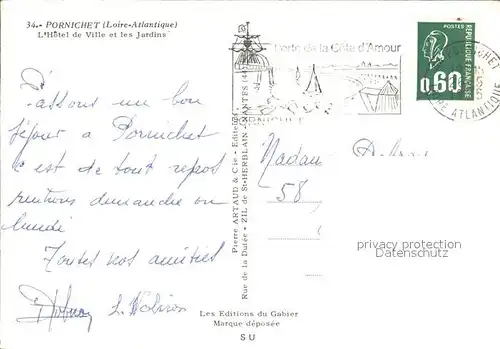 34.- PORNICHET (Loire-Atlantique)
L'Hôtel de Ville et les Jardins
Passons un bon
séjour à Pornichet
c'est de tout repos
rentrons dimanche ou
lundi
Toutes nos amitiés
Pierre ARTAUD & Cie - Editeurs
Rue de la Dutée - ZIL de St-HERBLAIN - NANTES (44)
Porte de la Côte d'Amour
PORNICHET
POSTES
RÉPUBLIQUE FRANÇAISE
0,60
PORNICHET
LOIRE ATLANTIQUE
Madame
58
privacy protection
Datenschutz
Les Editions du Gabier
Marque déposée
S U